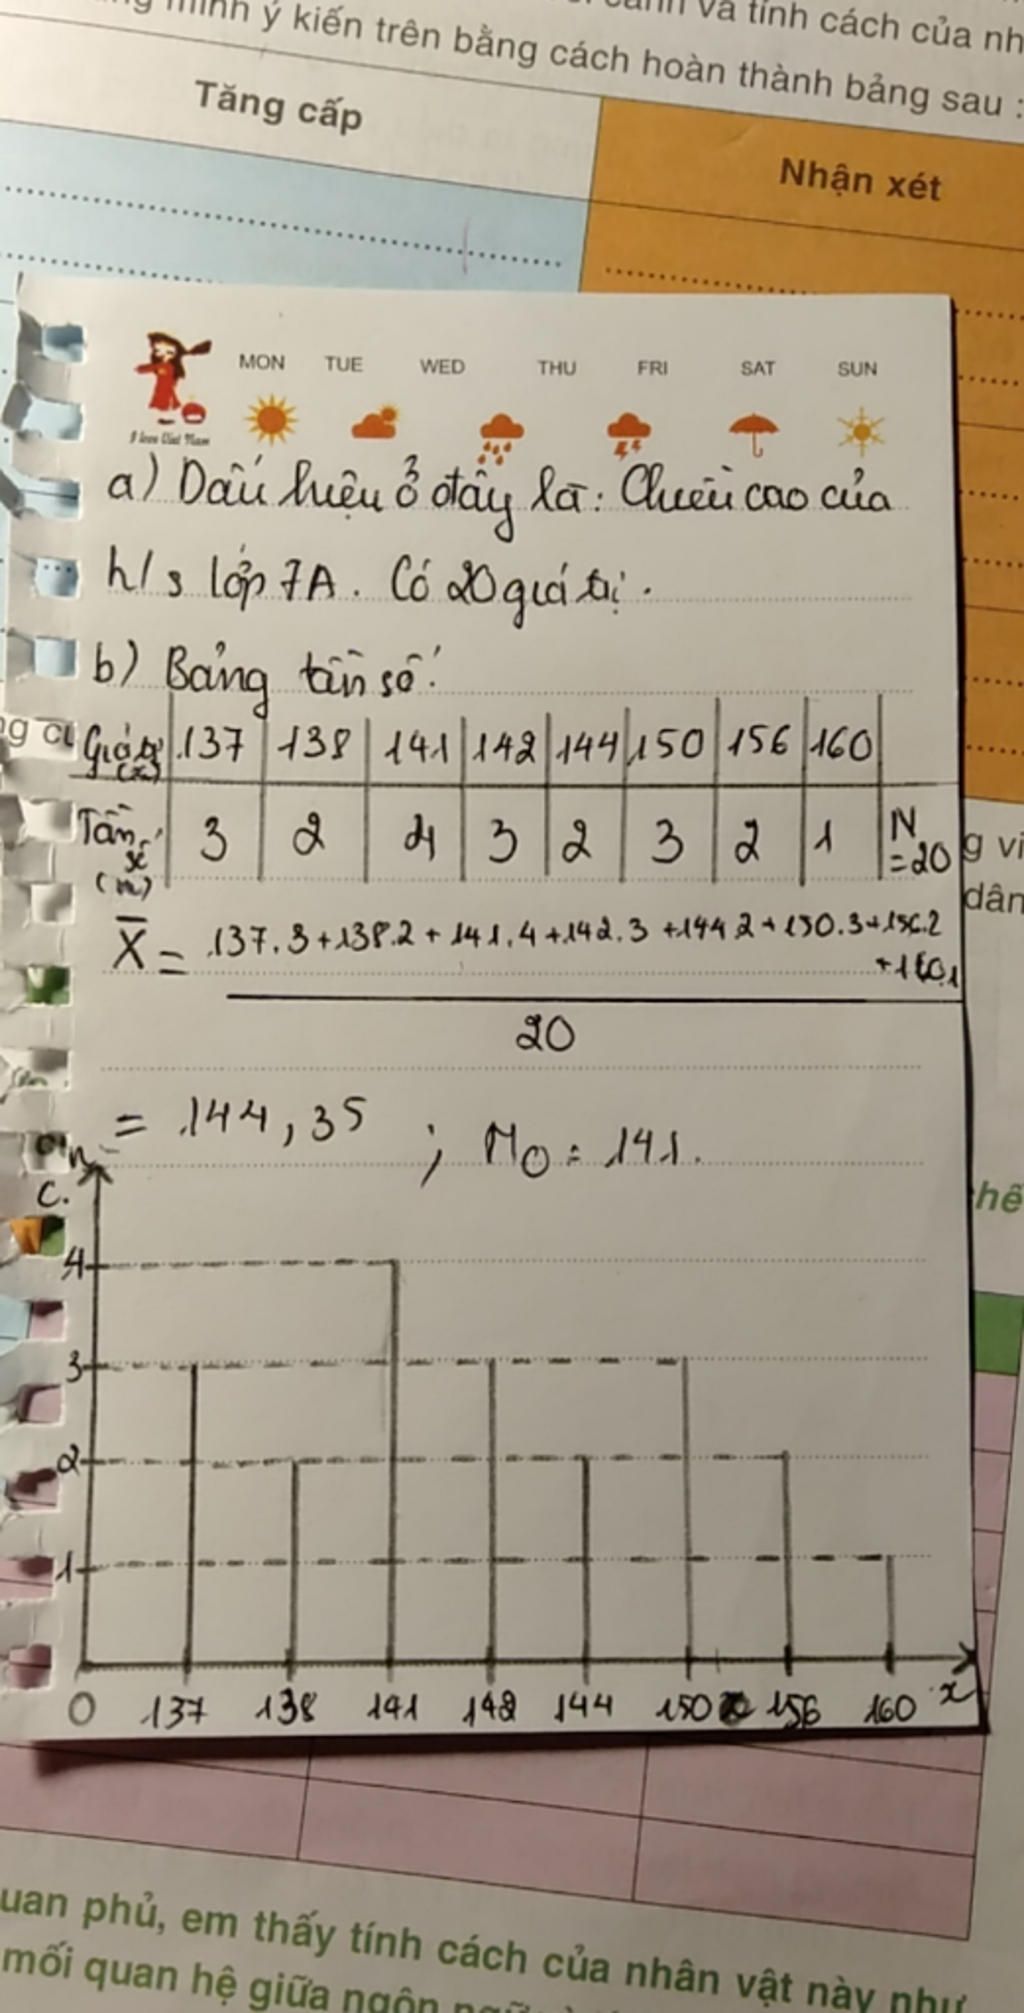 minh ý kiến trên bằng cách hoàn thành bảng sau :
và tính cách của nh
Tăng cấp
Nhận xét
MON TUE WED THU FRI SAT SUN
I love Viet Nam
a) Dấu hiệu ở đây là: Chiều cao của
h/s lớp 7A. Có 20 giá trị.
b) Bảng tần số:
Giá trị (x) 137 138 141 142 144 150 156 160
Tần số (n) 3 2 4 3 2 3 2 1 N = 20
X̄ = 137.3+138.2+141.4+142.3+144.2+150.3+156.2
+160.1
20
= 144,35 ; M0 = 141.
n
c.
4
3
2
1
0 137 138 141 142 144 150 156 160 x
g vi
dân
hê
uan phủ, em thấy tính cách của nhân vật này như
mối quan hệ giữa ngôn